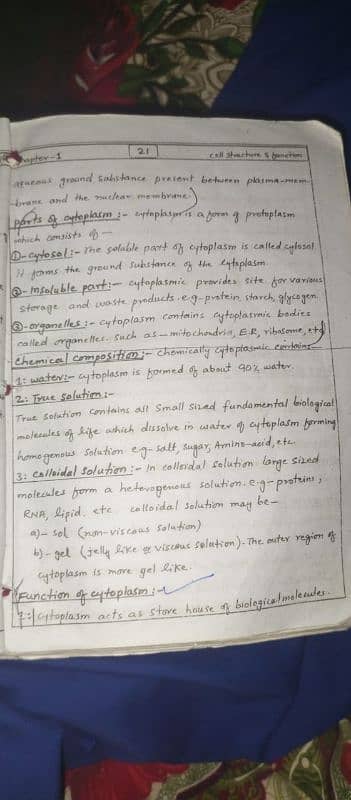 Chapter-1 21 Cell structure & function
aqueous ground substance present between plasma-mem-
brane and the nuclear membrane
parts of cytoplasm :- cytoplasm is a form of protoplasm
which consists of —
①-cytosol:- The soluble part of cytoplasm is called cytosol
it forms the ground substance of the cytoplasm.
②- Insoluble part:- cytoplasmic provides site for various
storage and waste products. e.g-protein, starch, glycogen
③-organelles :- cytoplasm contains cytoplasmic bodies
called organelles. Such as - mitochondria, E.R, ribosome, etc
Chemical composition:- Chemically cytoplasmic contains
1: water:- cytoplasm is formed of about 90% water.
2: True solution :-
True solution contains all small sized fundamental biological
molecules of life which dissolve in water of cytoplasm forming
homogenous solution e.g- salt, sugar, Amino-acid, etc.
3: Colloidal solution :- In colloidal solution large sized
molecules form a heterogenous solution. e.g- proteins,
RNA, lipid, etc colloidal solution may be -
a)- sol (non-viscous solution)
b)- gel (jelly like or viscous solution). The outer region of
cytoplasm is more gel like.
Function of cytoplasm :-
1: cytoplasm acts as store house of biological molecules.